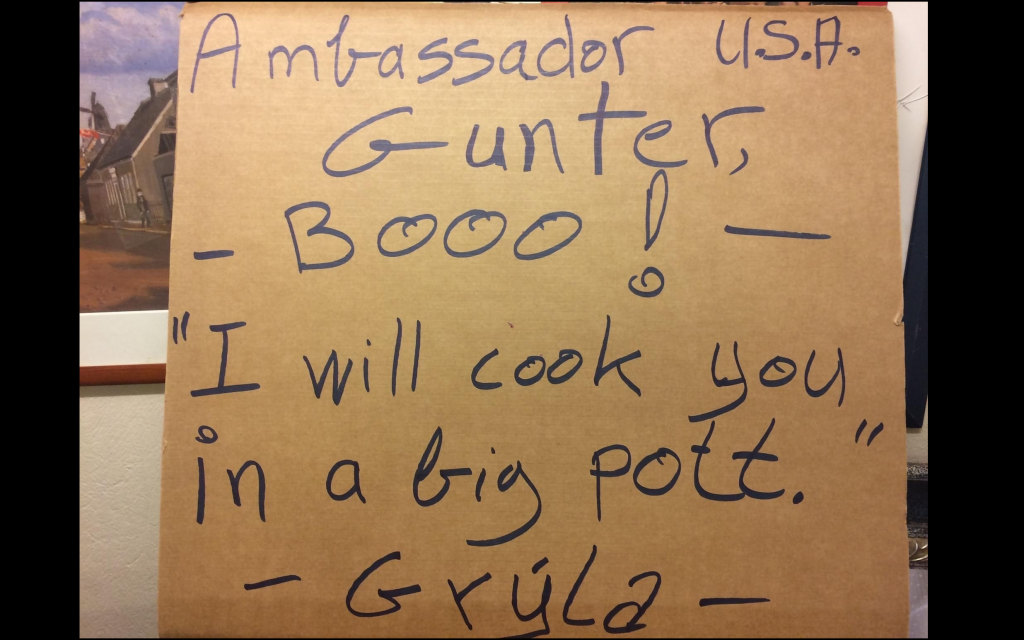 Ambassador U.S.A.
Gunter,
- Booo! -
"I will cook you
in a big pott."
- Grýla -